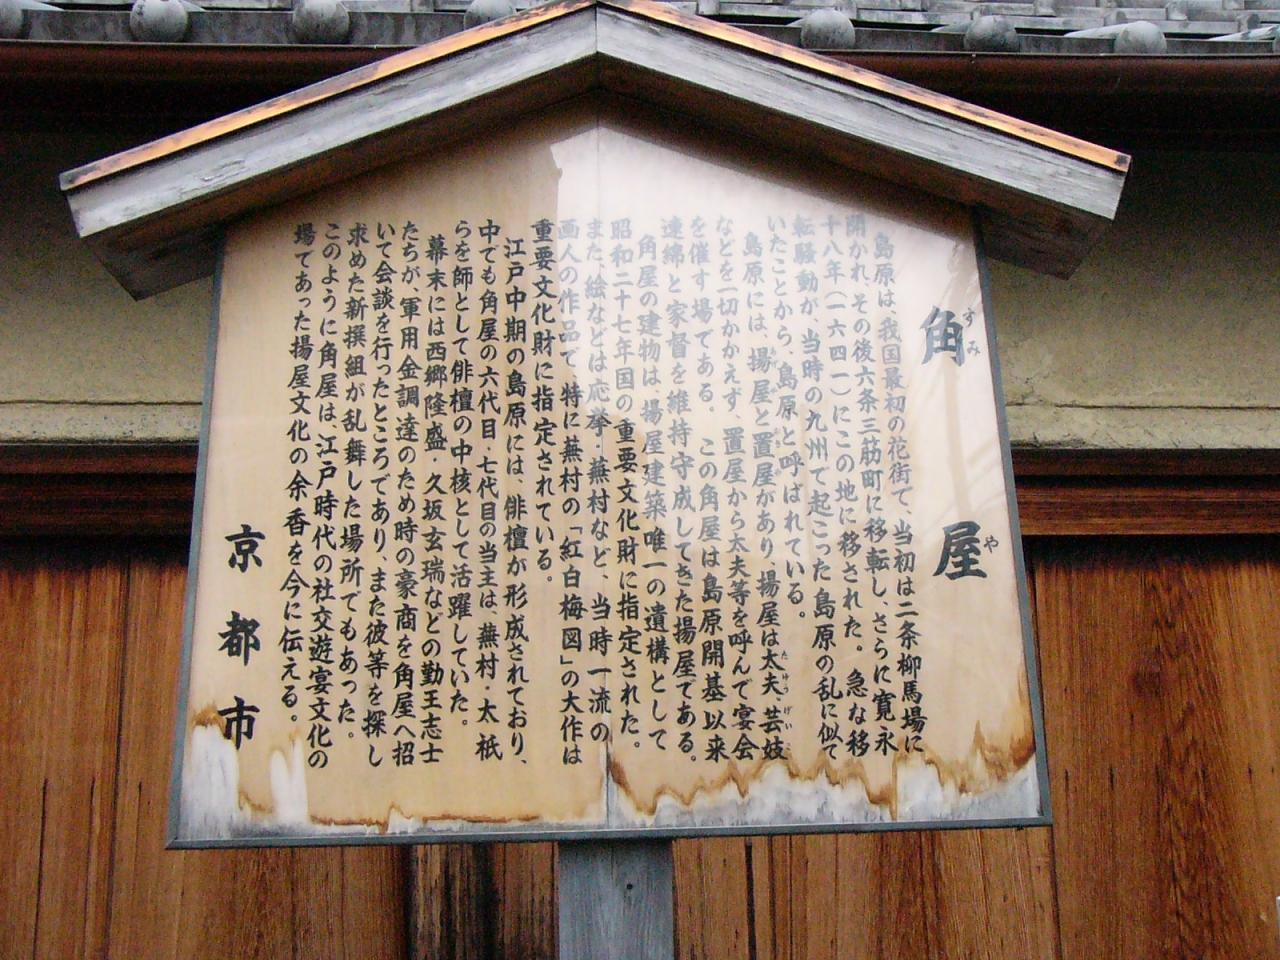 角屋
すみや
島原は、我国最初の花街で、当初は二条柳馬場に
開かれ、その後六条三筋町に移転し、さらに寛永
十八年(一六四一)にこの地に移された。急な移
転騒動が、当時の九州で起こった島原の乱に似て
いたことから、島原と呼ばれている。
島原には、揚屋と置屋があり、揚屋は太夫・芸妓
などを一切かかえず、置屋から太夫等を呼んで宴会
を催す場である。この角屋は島原開基以来
連綿と家督を維持守成してきた揚屋である。
角屋の建物は、揚屋建築唯一の遺構として
昭和二十七年国の重要文化財に指定された。
また、絵などは応挙・蕪村など、当時一流の
画人の作品で、特に蕪村の「紅白梅図」の大作は
重要文化財に指定されている。
江戸中期の島原には、俳壇が形成されており、
中でも角屋の六代目、七代目の当主は、蕪村・太祇
らを師として俳壇の中核として活躍していた。
幕末には西郷隆盛・久坂玄瑞などの勤王志士
たちが、軍用金調達のため時の豪商を角屋へ招
いて会談を行ったところであり、また彼等を探し
求めた新撰組が乱舞した場所でもあった。
このように角屋は、江戸時代の社交遊宴文化の
場であった揚屋文化の余香を今に伝える。
京都市